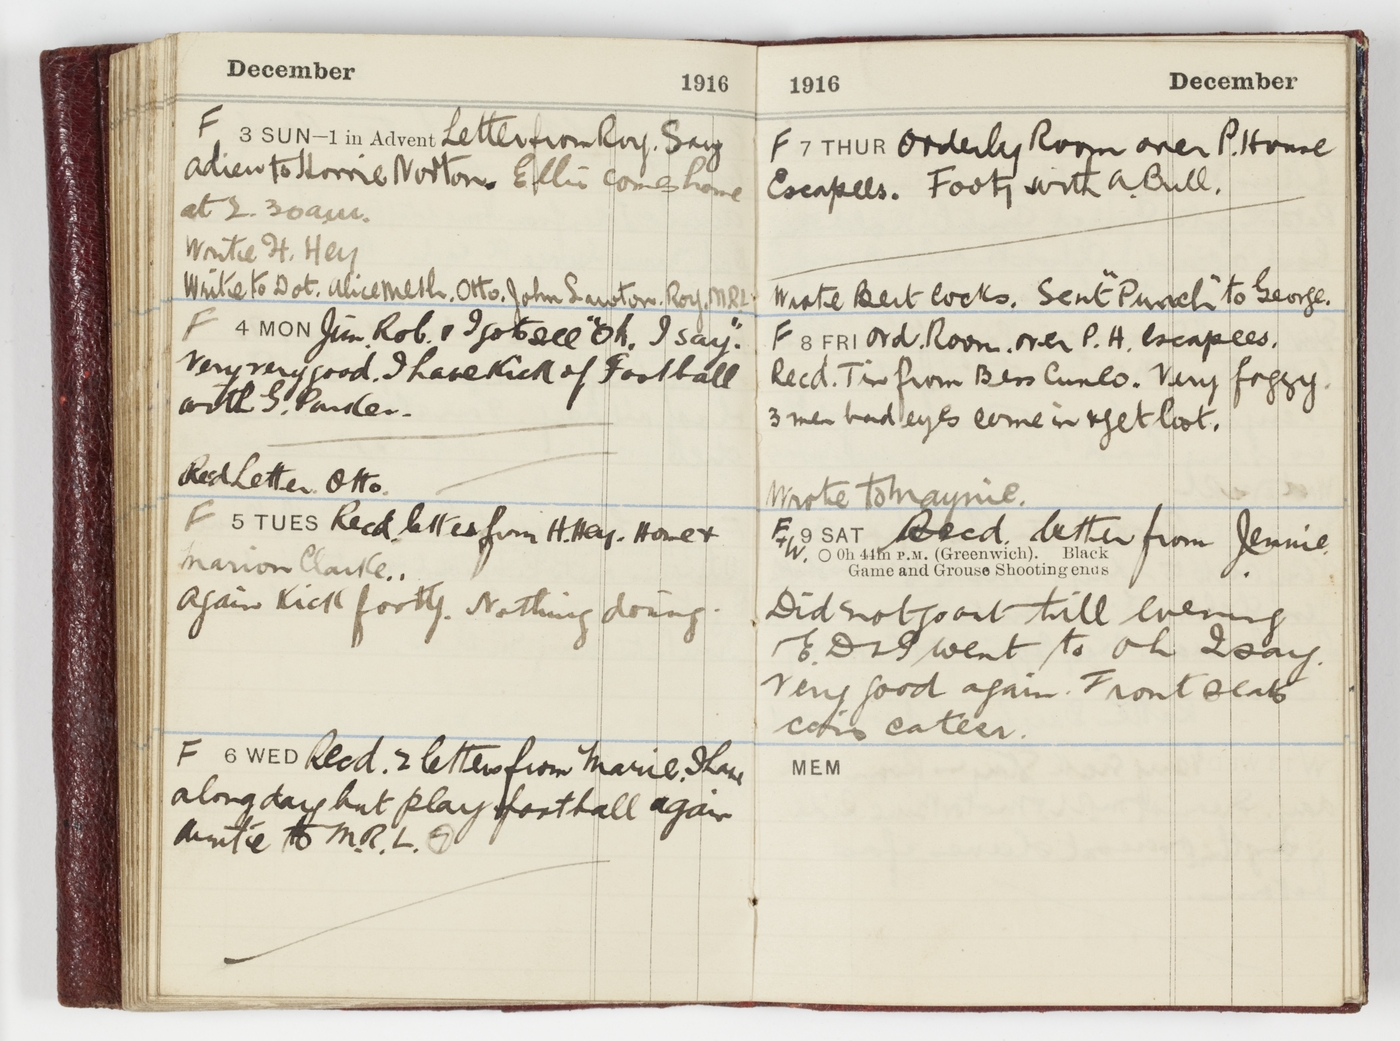 December 1916
F 3 SUN—1 in Advent Letter from Roy. Say
adieu to Horrie Norton. Ellis comes home
at 2.30 a.m.
Write H. Hey
Write to Dot. Alice Meth. Otto. John Roy. M.R.L.
F 4 MON Jim. Rob. & I go to see "Oh. I say".
Very very good. I have Kick of Football
with G. Parker.
Recd Letter. Otto.
F 5 TUES Recd. letters from H. Hey. Home &
Marion Clarke..
Again Kick footy. Nothing doing.
F 6 WED Recd. 2 letters from Marie. I have
a long day but play football again
write to M.R.L.
1916 December
F 7 THUR Orderly Room over P. House
Escapees. Footy with A. Bull.
Wrote Bert Cocks. Sent "Punch" to George.
F 8 FRI Ord. Room. over P. H. escapees.
Recd. Tin from Bess Cuneo. Very foggy.
3 men bad eyes come in & get lost.
Wrote to Maynie.
F. & W. 9 SAT Recd. letter from Jennie.
0h 44m P.M. (Greenwich). Black
Game and Grouse Shooting ends
Did not go out till evening
E. D & I went to Oh I say.
Very good again. Front seats
MEM